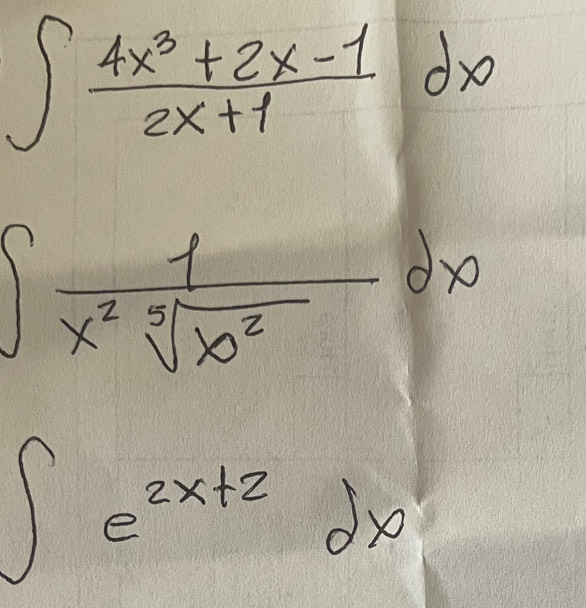 ∫ (4x³ + 2x - 1)/(2x + 1) dx
∫ 1/(x² ⁵√(x²)) dx
∫ e^(2x+2) dx